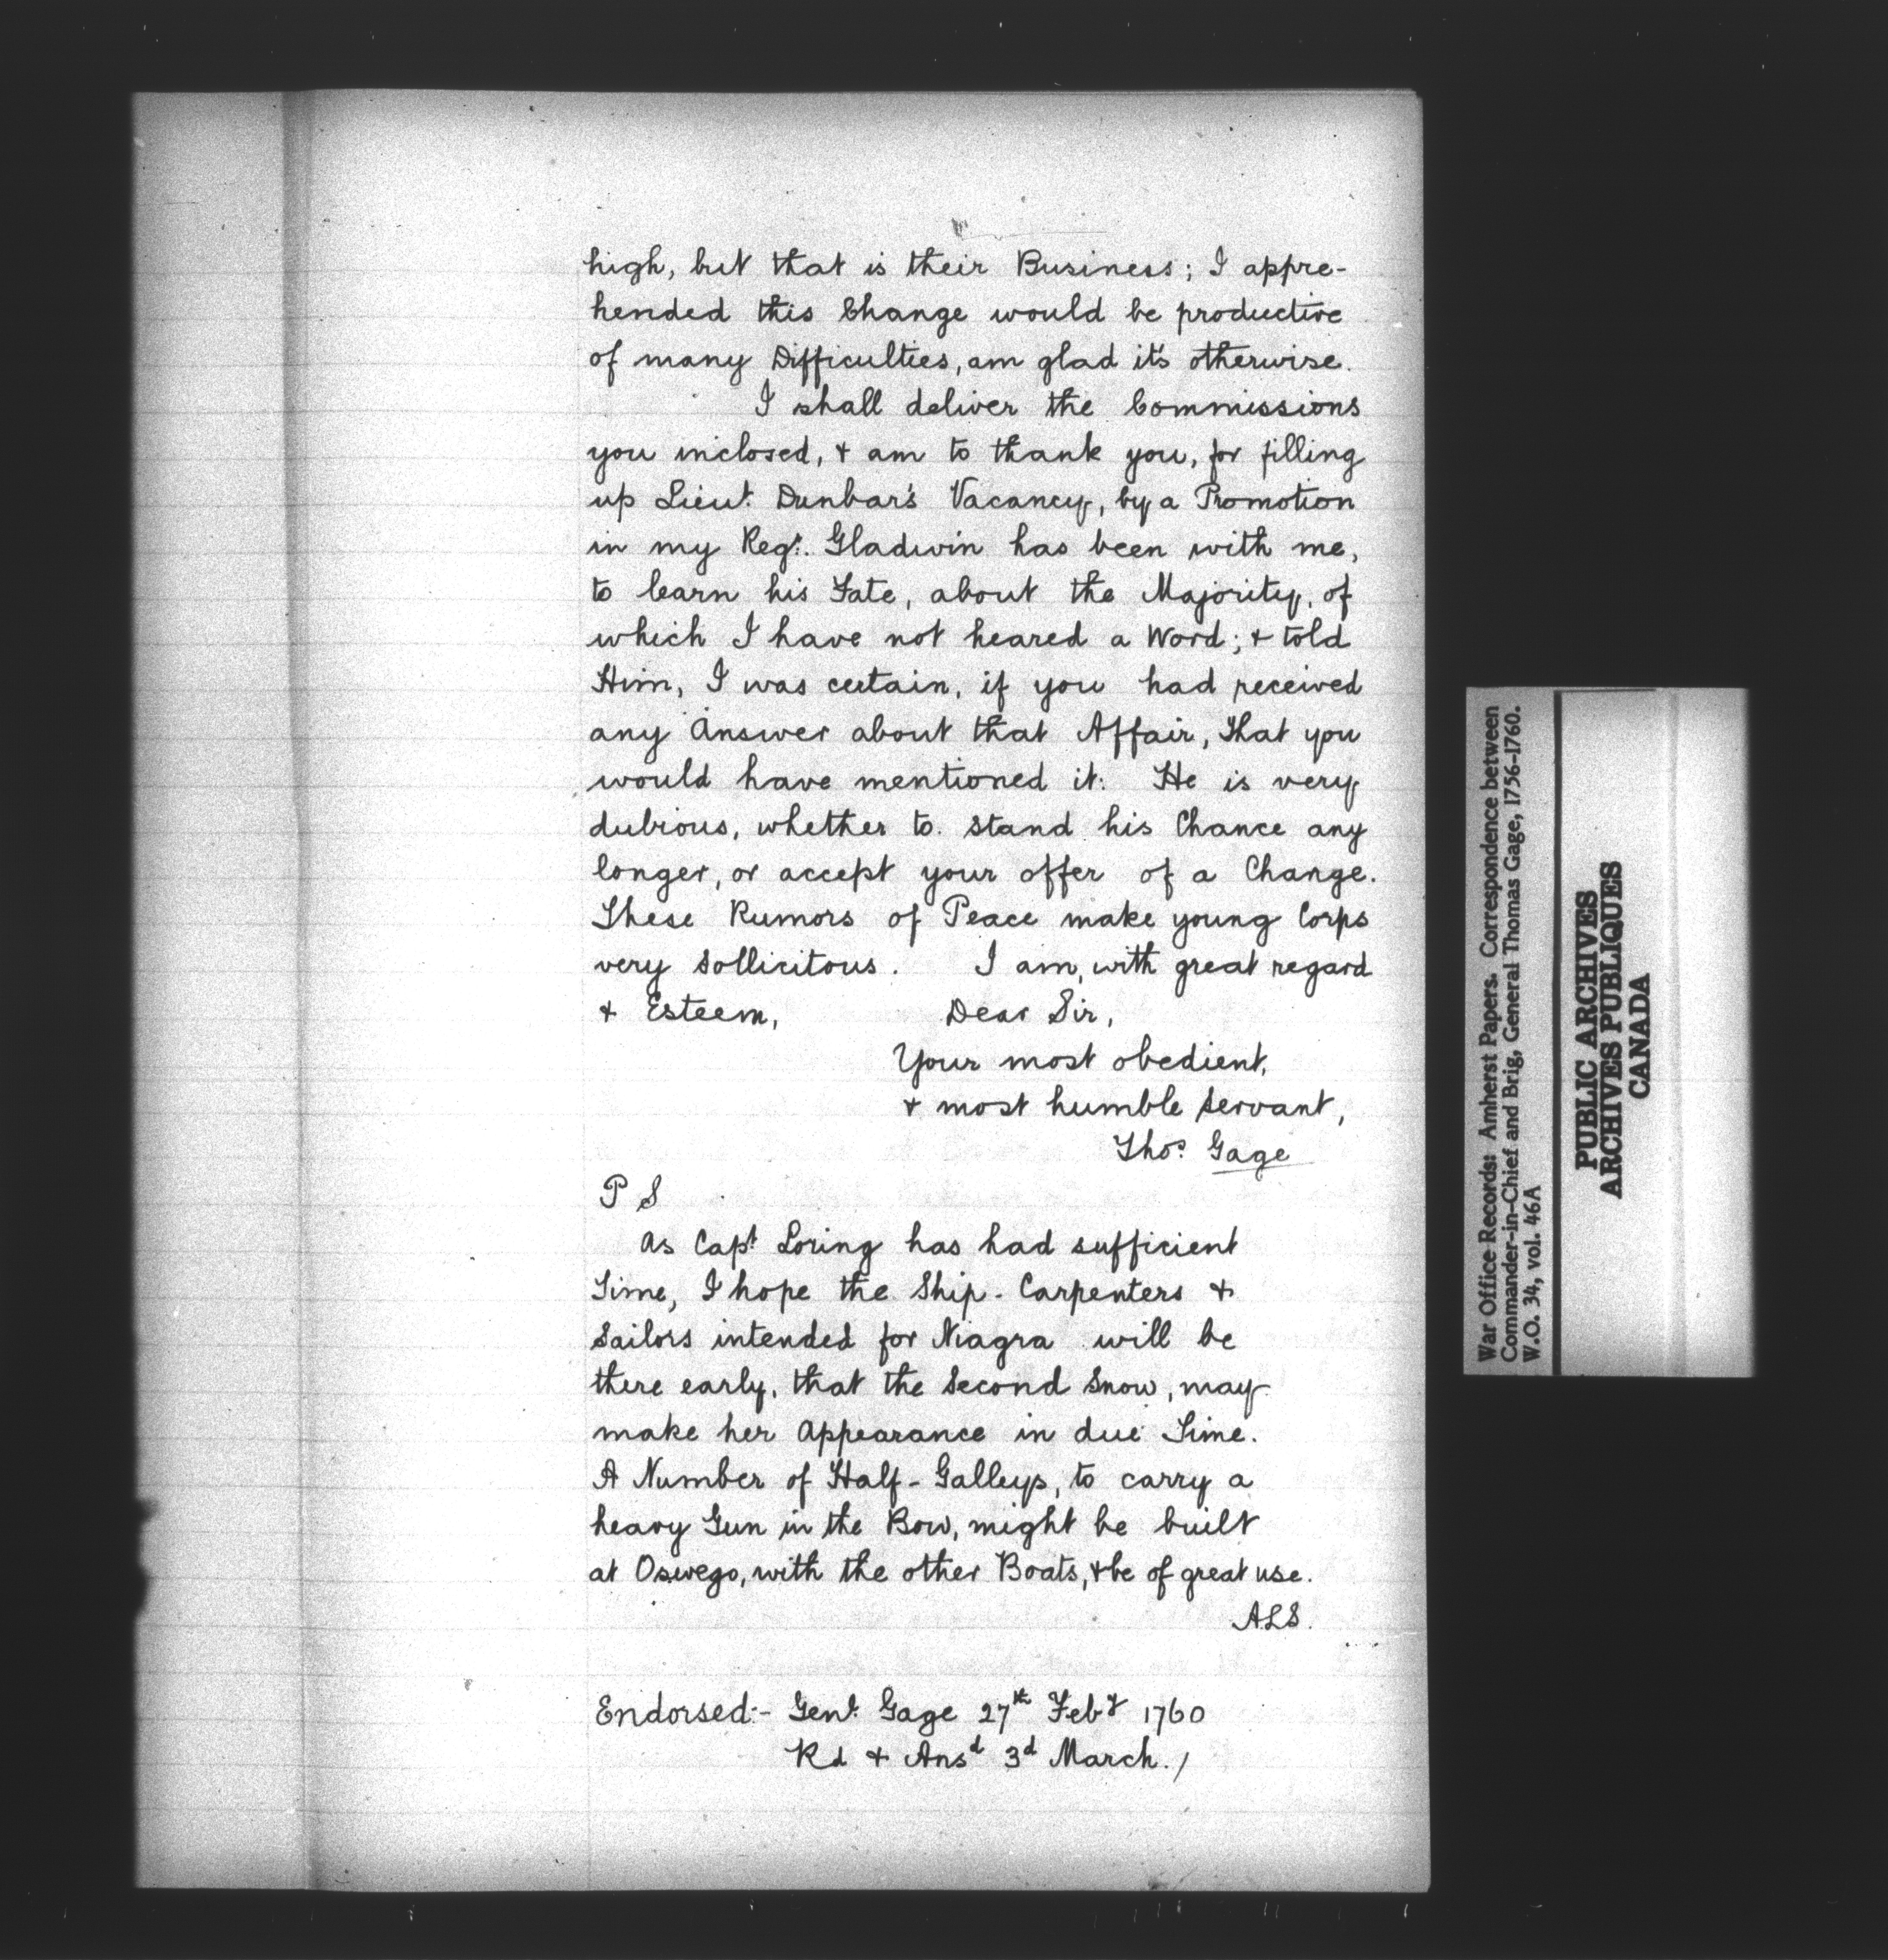 high, but that is their Business; I appre-
hended this Change would be productive
of many Difficulties, am glad it's otherwise.
I shall deliver the Commissions
you inclosed, & am to thank you, for filling
up Lieut. Dunbar's Vacancy, by a Promotion
in my Regt. Gladwin has been with me,
to learn his Fate, about the Majority, of
which I have not heared a Word; & told
Him, I was certain, if you had received
any Answer about that Affair, that you
would have mentioned it: He is very
dubious, whether to stand his Chance any
longer, or accept your offer of a Change.
These Rumors of Peace make young Corps
very sollicitous. I am, with great regard
& Esteem, Dear Sir,
Your most obedient,
& most humble Servant,
Thos. Gage
P S
As Capt. Loring has had sufficient
Time, I hope the Ship-Carpenters &
Sailors intended for Niagra will be
there early, that the Second Snow, may
make her Appearance in due Time.
A Number of Half-Galleys, to carry a
heavy Gun in the Bow, might be built
at Oswego, with the other Boats, & be of great use.
ALS.
Endorsed:- Genl. Gage 27th Feby 1760
Rd & Ansd 3d March./
War Office Records: Amherst Papers. Correspondence between
Commander-in-Chief and Brig, General Thomas Gage, 1756-1760.
W.O. 34, vol. 46A
PUBLIC ARCHIVES
ARCHIVES PUBLIQUES
CANADA